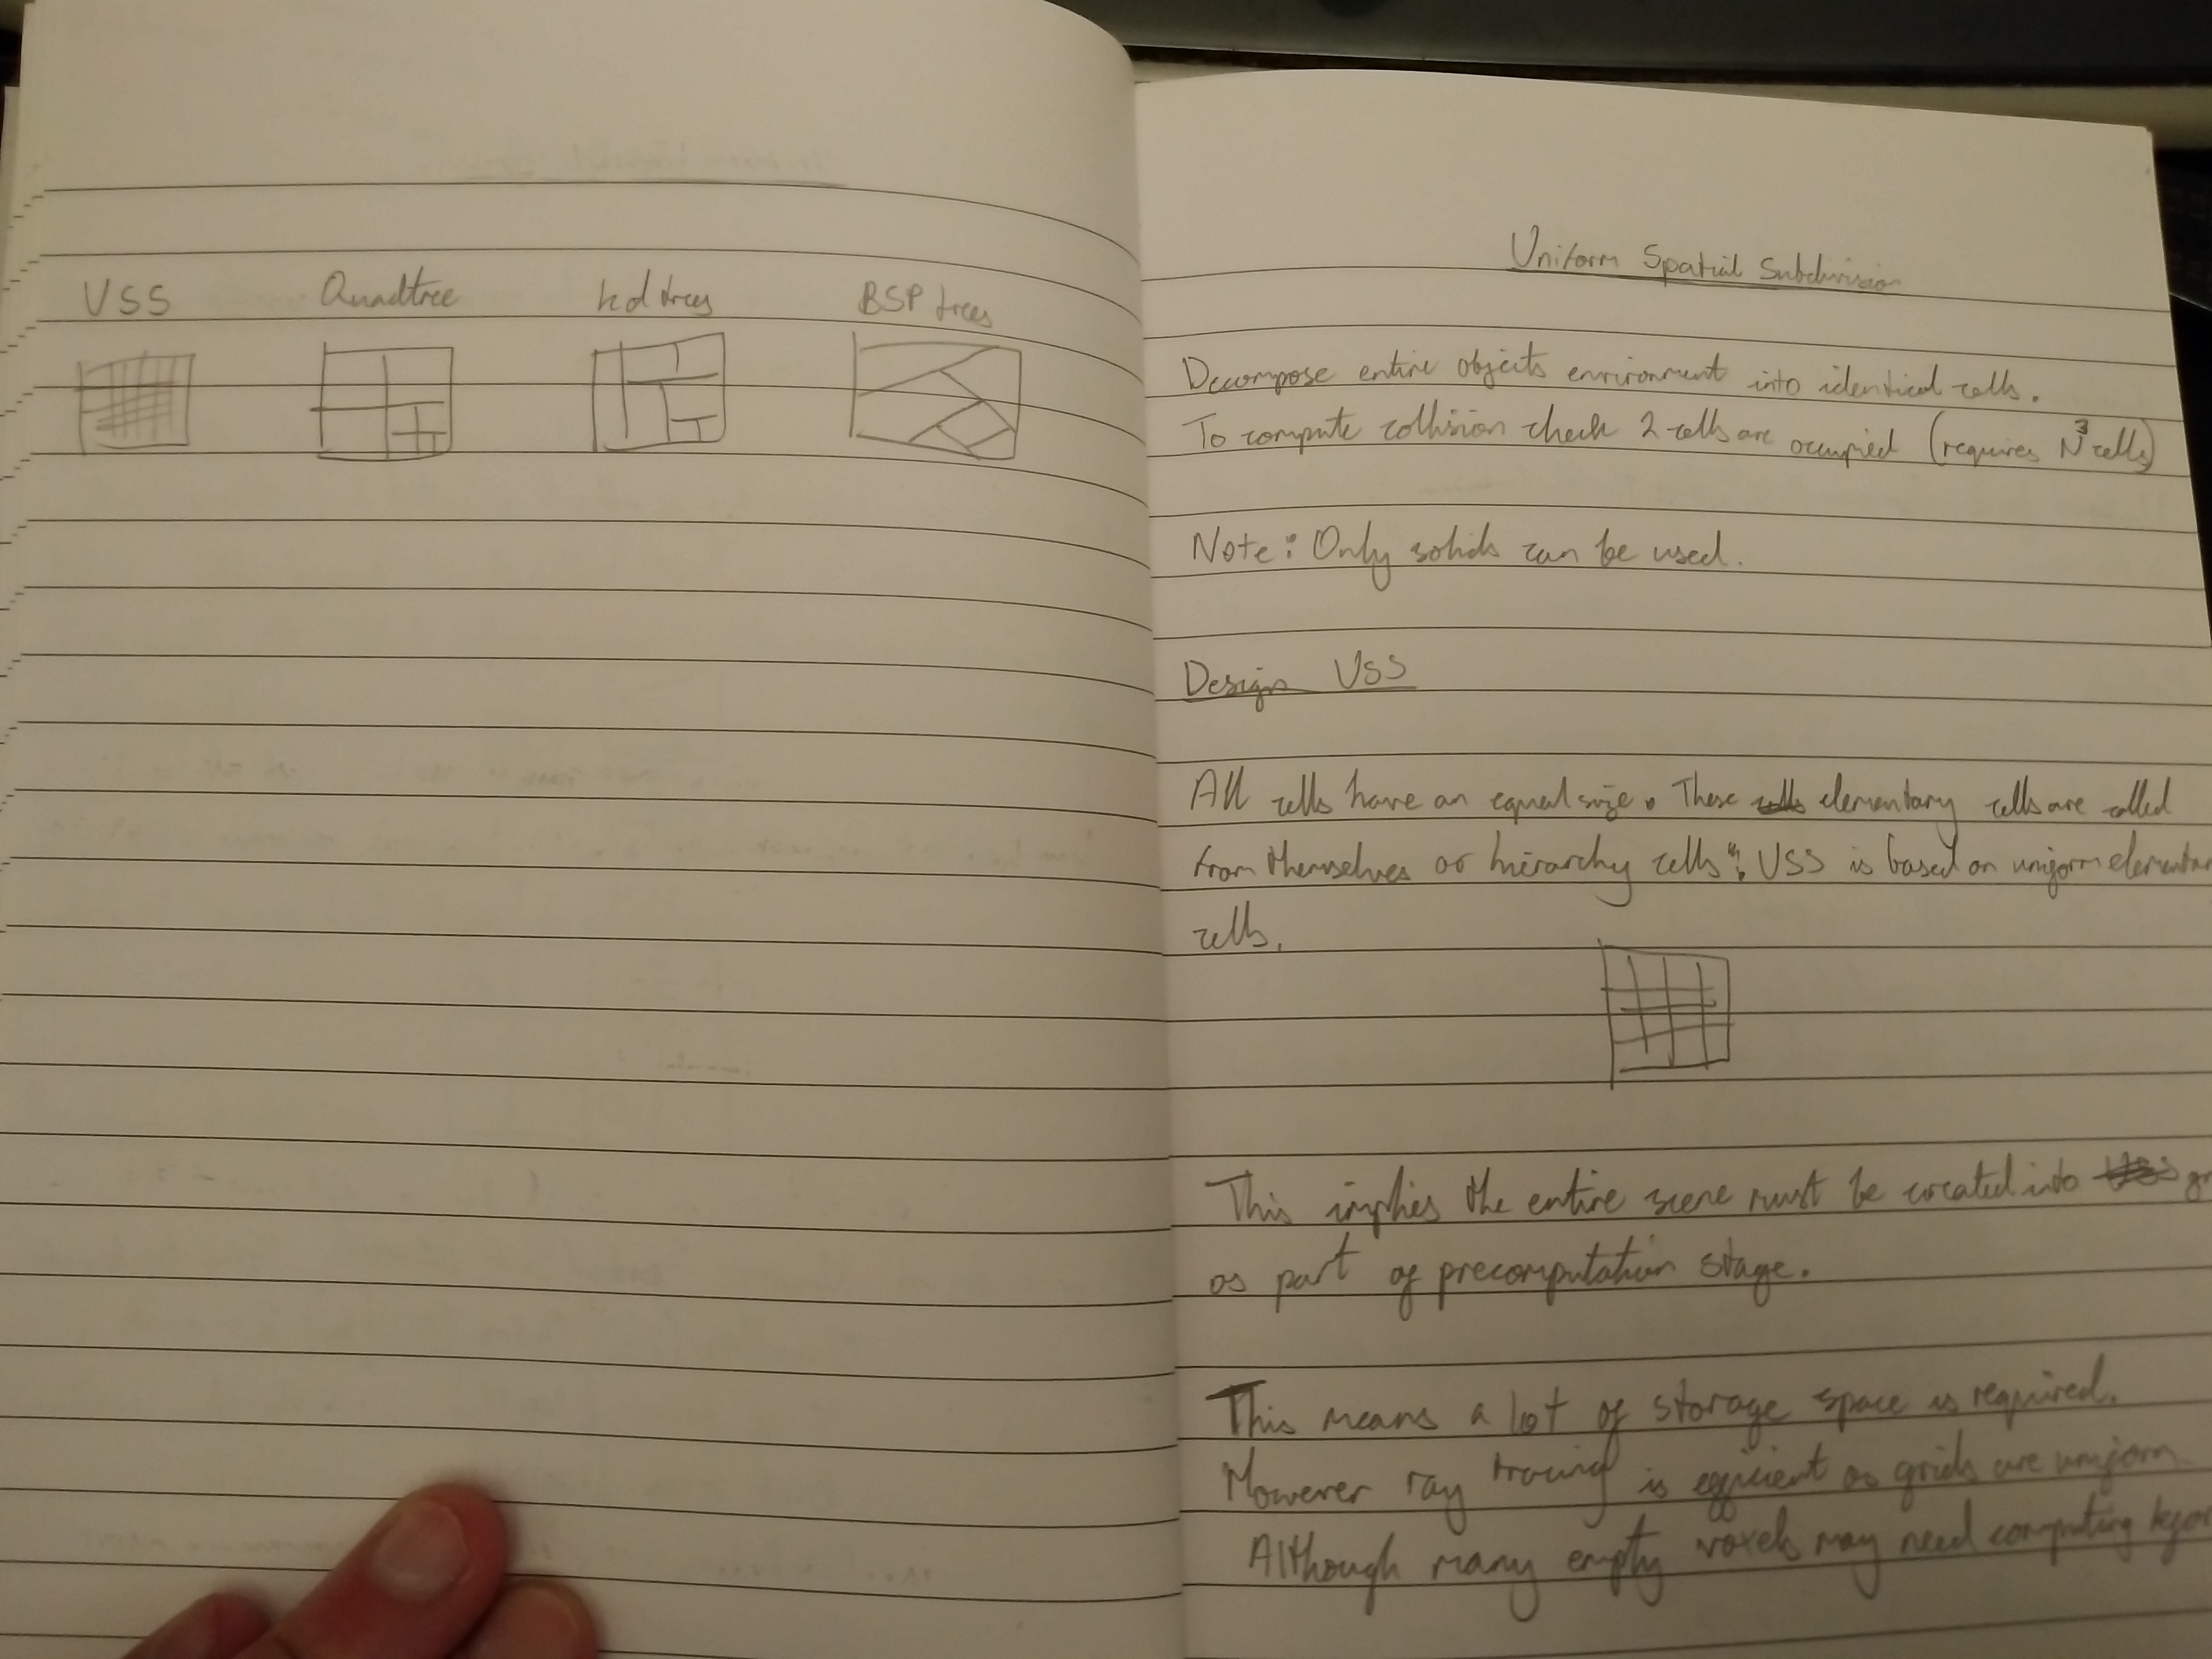 USS Quadtree kd trees BSP trees
Uniform Spatial Subdivision
Decompose entire objects environment into identical cells.
To compute collision check 2 cells are occupied (requires N³ cells)
Note: Only solids can be used.
Design USS
All cells have an equal size. These elementary cells are called
from themselves or hierarchy cells". USS is based on uniform elementar
cells.
This implies the entire scene must be created into
as part of precomputation stage.
This means a lot of storage space is required.
However ray tracing is efficient as grids are uniform.
Although many empty voxels may need computing